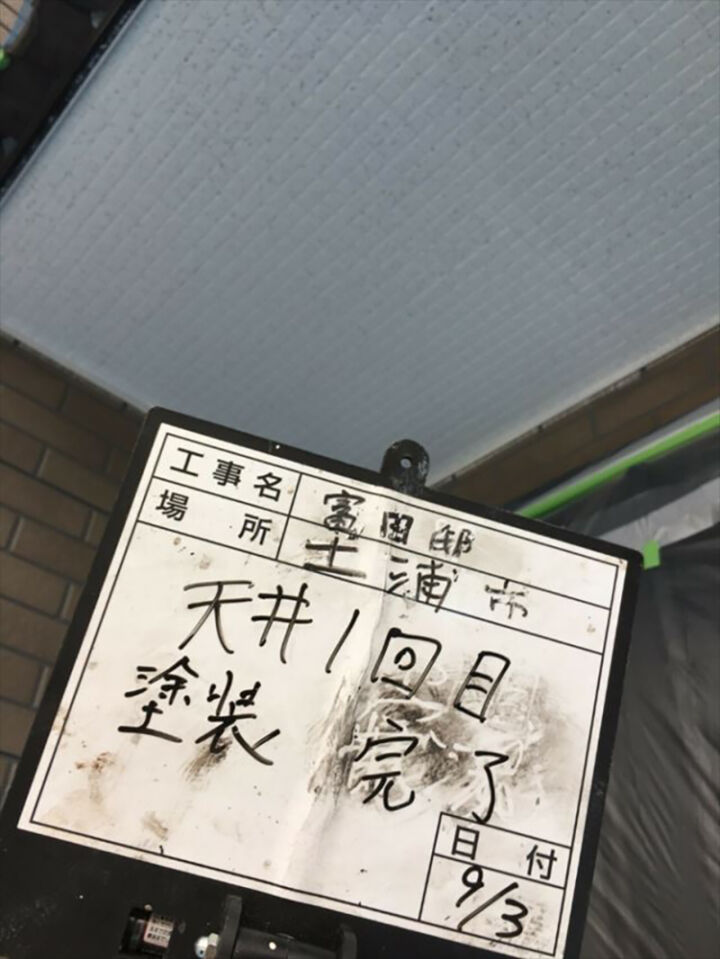 工事名 富田邸
場所 土浦市
天井1回目
塗装 完了
日付
9/3